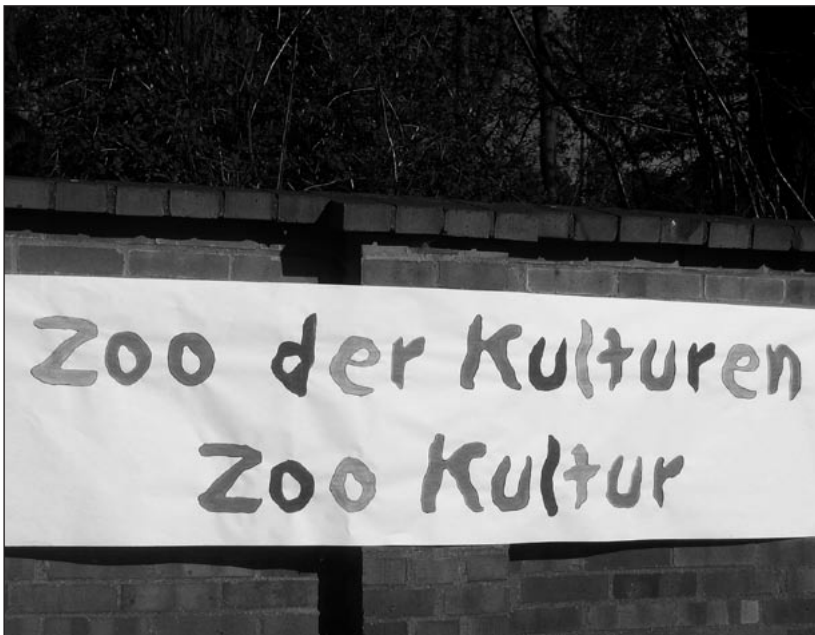 Zoo der Kulturen
Zoo Kultur